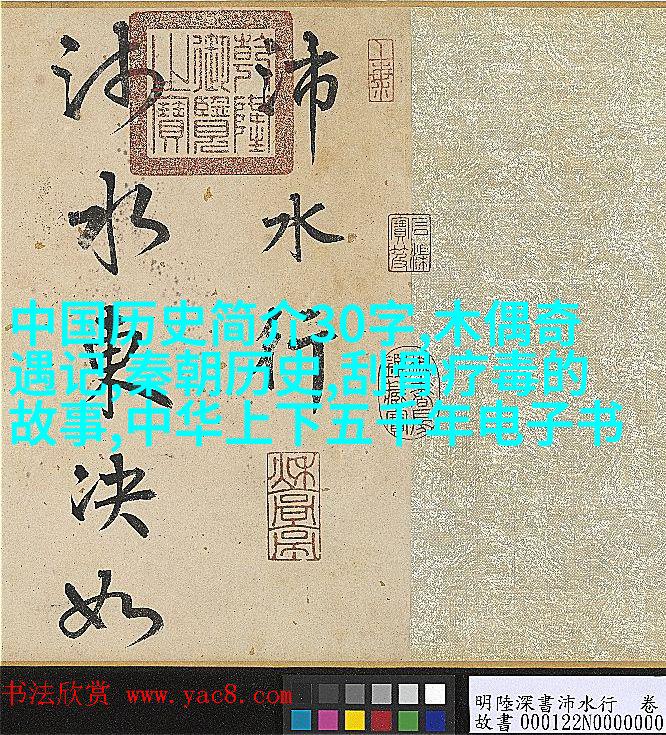 沛水行
沛水東決如
乾隆御覽之寶
中国历史简介30字,木偶奇
遇记,秦朝历史,刮骨疗毒的
故事,中华上下五千年电子书
书法欣赏 www.yac8.com
明陸深書沛水行 卷
故書000122N0000000